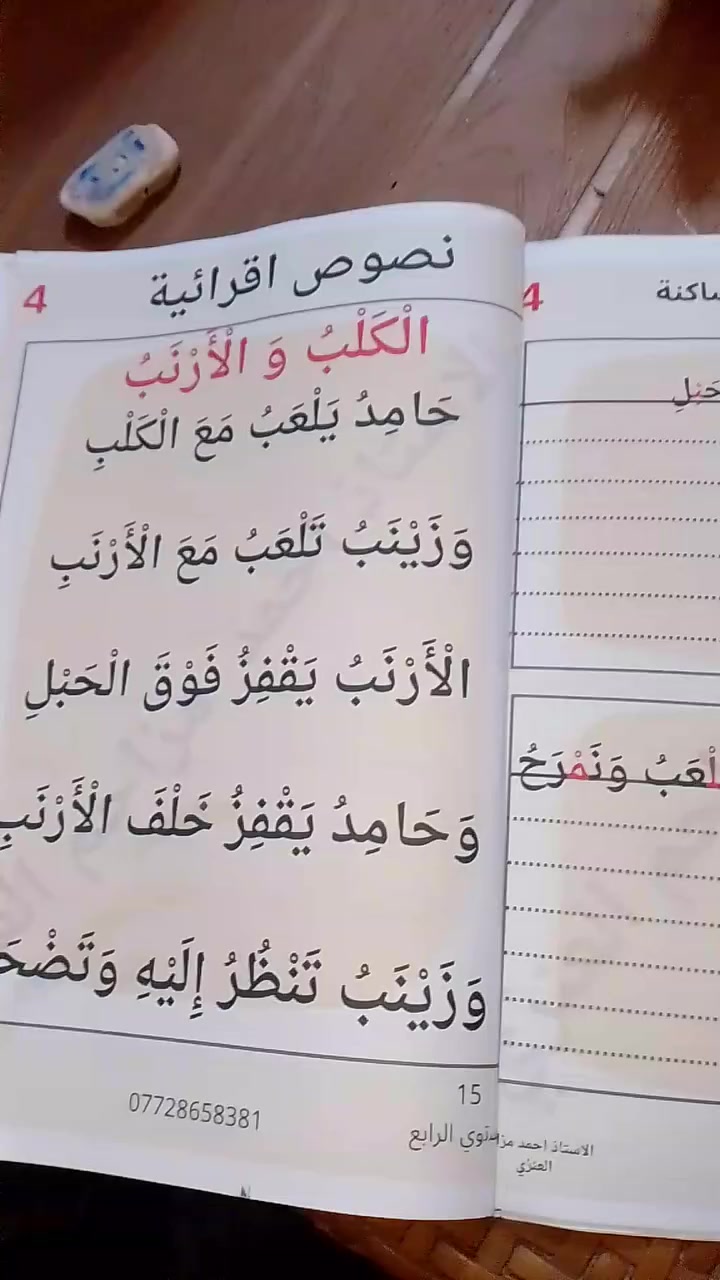 نصوص اقرائية
4
الْكَلْبُ وَ الْأَرْنَبُ
حَامِدُ يَلْعَبُ مَعَ الْكَلْبِ
وَزَيْنَبُ تَلْعَبُ مَعَ الْأَرْنَبِ
الْأَرْنَبُ يَقْفِزُ فَوْقَ الْحَبْلِ
وَحَامِدُ يَقْفِزُ خَلْفَ الْأَرْنَبِ
وَزَيْنَبُ تَنْظُرُ إِلَيْهِ
15
07728658381
الرابع
4
وَنَمْرَحُ
الاستاذ احمد
العنزي